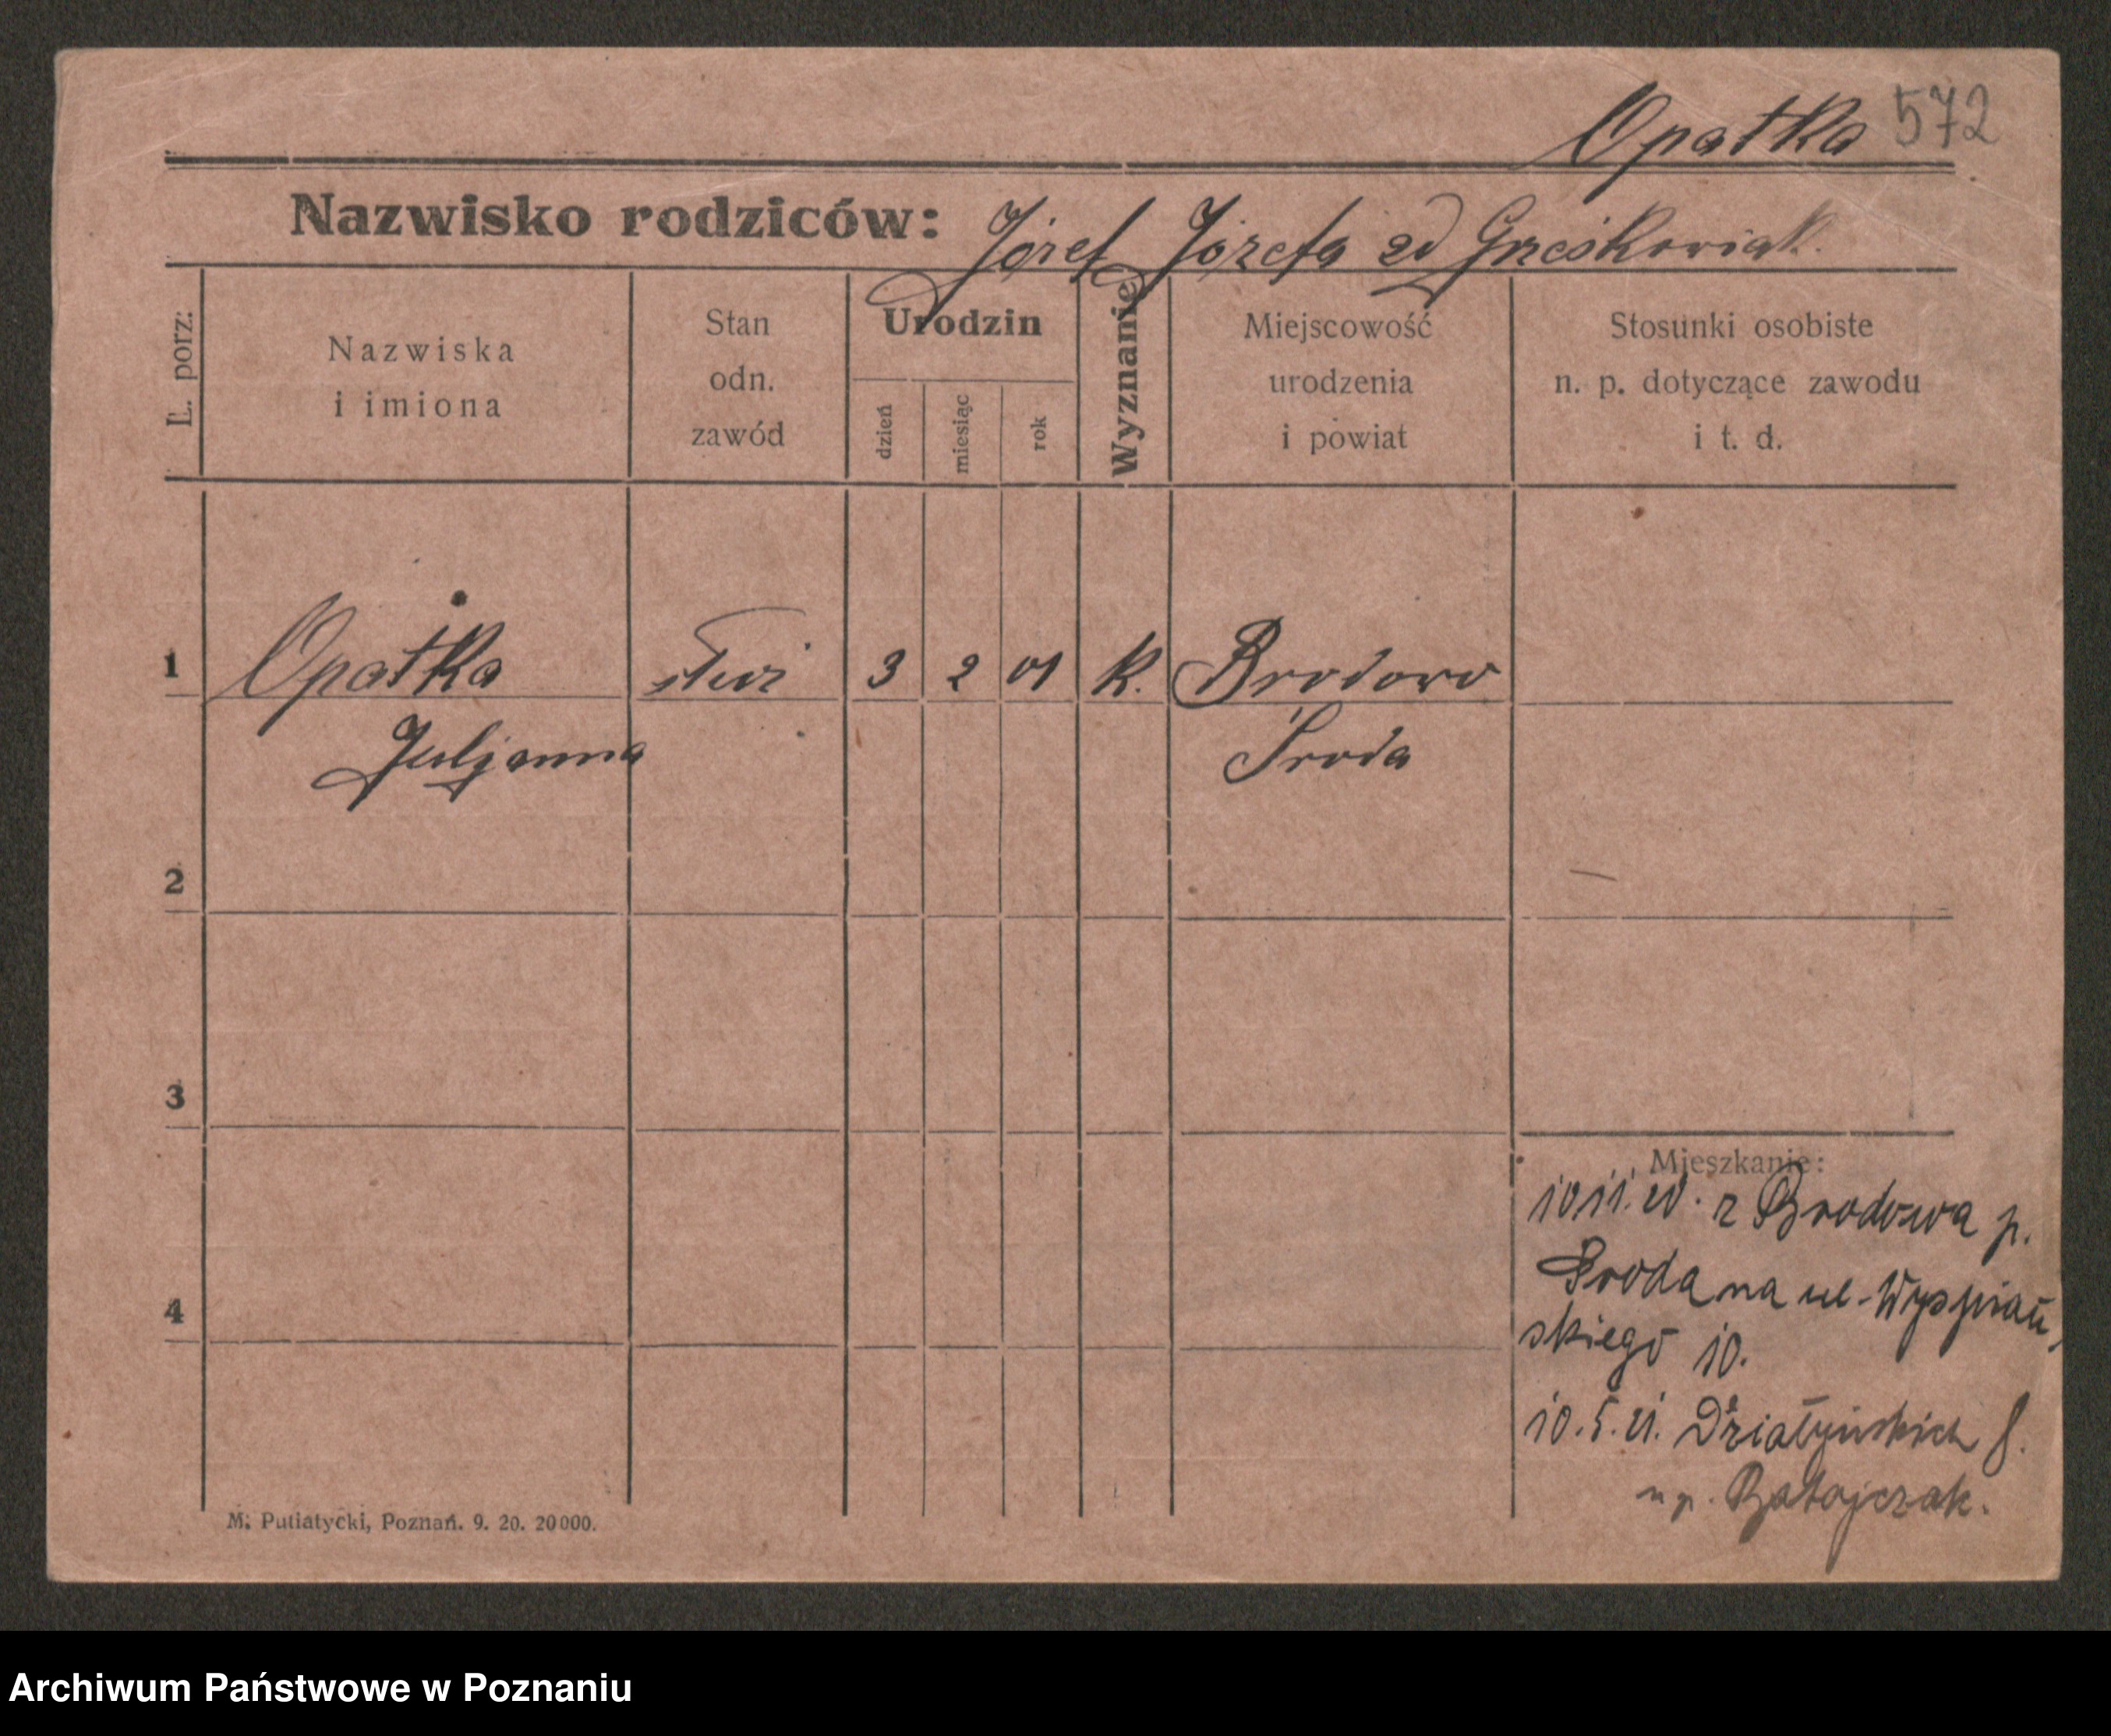 Opatka 572
Nazwisko rodziców: Józef Józefa zd Grześkowiak.
L. porz:
Nazwiska
i imiona
Stan
odn.
zawód
Urodzin
dzień
miesiąc
rok
Wyznanie
Miejscowość
urodzenia
i powiat
Stosunki osobiste
n. p. dotyczące zawodu
i t. d.
1 Opatka służ 3 2 01 k. Brodowo
Juljanna Środa
2
3
Mieszkanie:
10 11. 20. z Brodowa p.
Środa na ul. Wyspiań-
4
skiego 10.
10. 5. 21. Działyńskich 8.
u p. Ratajczak.
M. Putiatycki, Poznań. 9. 20. 20000.
Archiwum Państwowe w Poznaniu